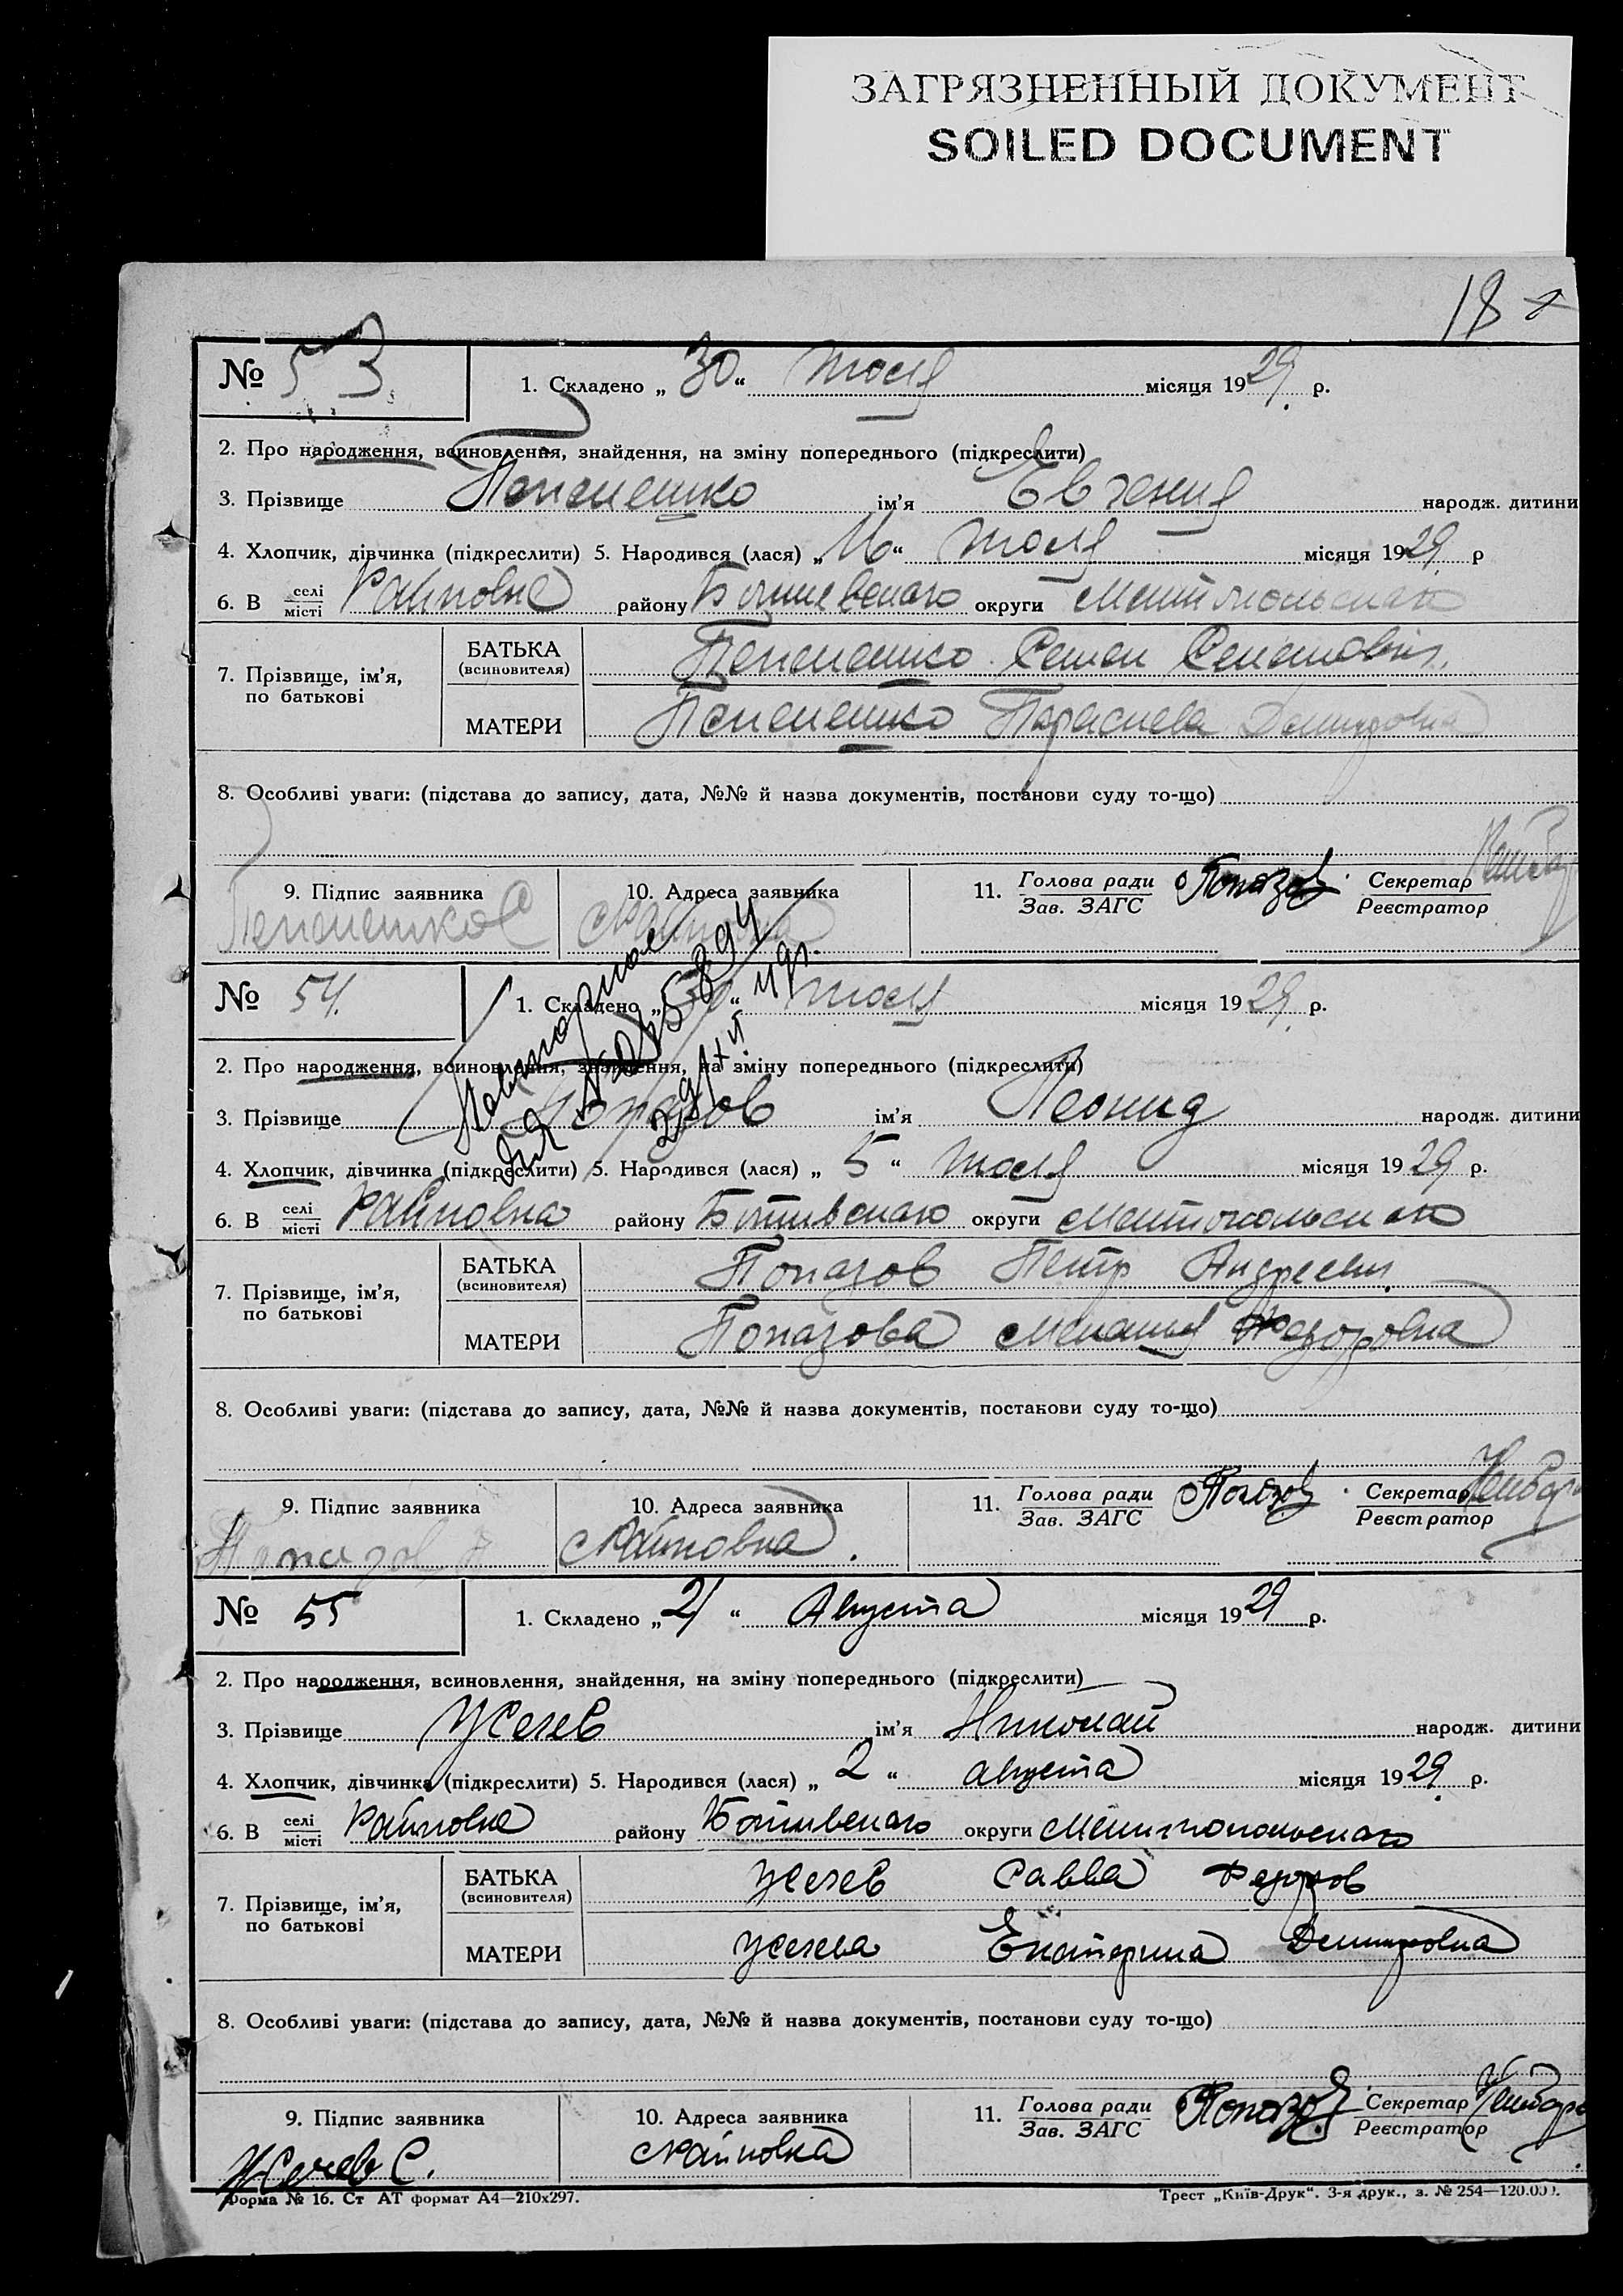 ЗАГРЯЗНЕННЫЙ ДОКУМЕНТ
SOILED DOCUMENT
18
№ 53 1. Складено „30“ июля місяця 1929 р.
2. Про народження, всиновлення, знайдення, на зміну попереднього (підкреслити)
3. Прізвище ім'я Евгения народж. дитини
4. Хлопчик, дівчинка (підкреслити) 5. Народився (лася) „16“ июля місяця 1929 р
6. В селі/місті Райновка району округи Мелитопольского
7. Прізвище, ім'я, по батькові
БАТЬКА (всиновителя) Семен Семенович
МАТЕРИ
8. Особливі уваги: (підстава до запису, дата, №№ й назва документів, постанови суду то-що)
9. Підпис заявника 10. Адреса заявника 11. Голова ради/Зав. ЗАГС Попазов Секретар/Реєстратор
Райновка
№ 54. 1. Складено „30“ июля місяця 1929 р.
Повторное
2. Про народження, всиновлення, знайдення, на зміну попереднього (підкреслити)
3. Прізвище Попазов ім'я Леонид народж. дитини
4. Хлопчик, дівчинка (підкреслити) 5. Народився (лася) „5“ июля місяця 1929 р.
6. В селі/місті Райновка району Ботивского округи Мелитопольского
7. Прізвище, ім'я, по батькові
БАТЬКА (всиновителя) Попазов Петр Андреевич
МАТЕРИ Попазова Мелания Федоровна
8. Особливі уваги: (підстава до запису, дата, №№ й назва документів, постанови суду то-що)
9. Підпис заявника 10. Адреса заявника 11. Голова ради/Зав. ЗАГС Попазов Секретар/Реєстратор
Попазов Райновка.
№ 55 1. Складено „21“ Августа місяця 1929 р.
2. Про народження, всиновлення, знайдення, на зміну попереднього (підкреслити)
3. Прізвище Жечев ім'я Николай народж. дитини
4. Хлопчик, дівчинка (підкреслити) 5. Народився (лася) „2“ августа місяця 1929 р.
6. В селі/місті Райновка району Ботивского округи Мелитопольского
7. Прізвище, ім'я, по батькові
БАТЬКА (всиновителя) Жечев Савва Федоров
МАТЕРИ Жечева Екатерина Демидовна
8. Особливі уваги: (підстава до запису, дата, №№ й назва документів, постанови суду то-що)
9. Підпис заявника 10. Адреса заявника 11. Голова ради/Зав. ЗАГС Попазов Секретар/Реєстратор
Жечев С. Райновка
Форма № 16. Ст АТ формат А4—210х297. Трест „Київ-Друк“. 3-я друк., з. № 254—120.000.